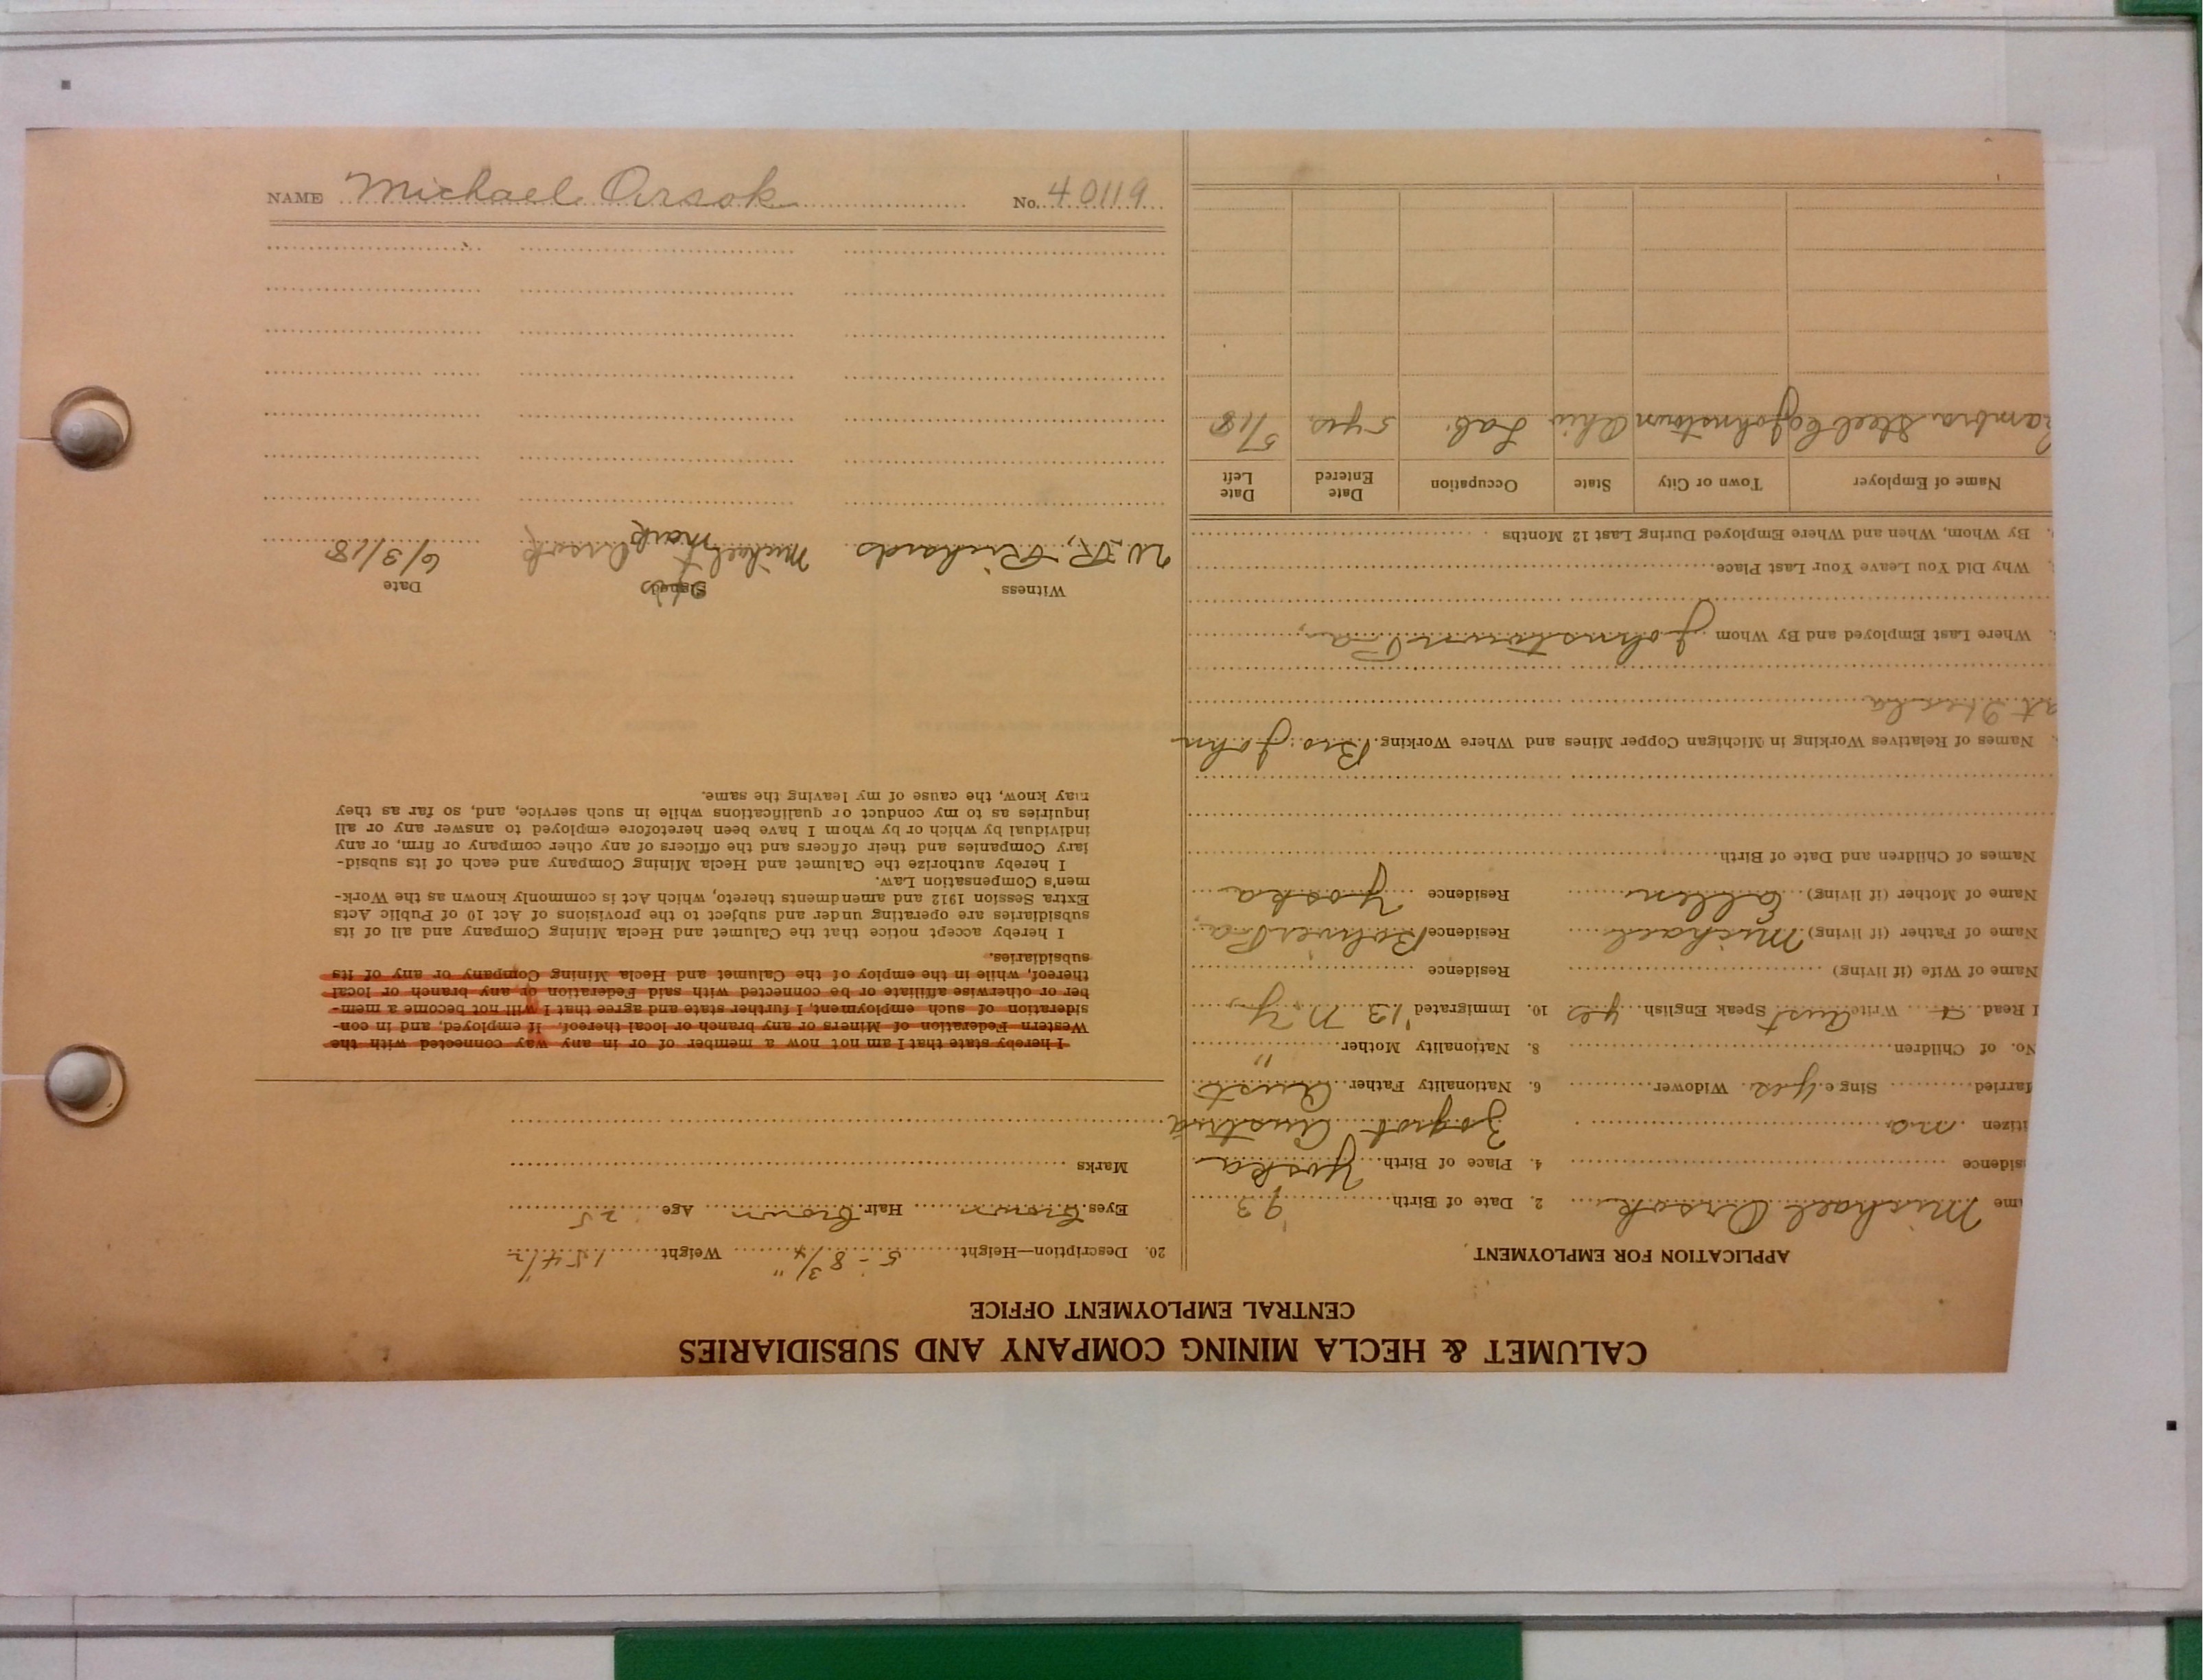 NAME Michael Orsok No. 40119
CALUMET & HECLA MINING COMPANY AND SUBSIDIARIES
CENTRAL EMPLOYMENT OFFICE
APPLICATION FOR EMPLOYMENT
ame Michael Orsok 2. Date of Birth '93
sidence 4. Place of Birth Yoska
itizen no Zogrob Austria
arried Sing e yes Widower 6. Nationality Father Aust
No. of Children 8. Nationality Mother "
I Read Write Aust Speak English yes 10. Immigrated '13 N.Y.
Name of Wife (if living) Residence
Name of Father (if living) Michael Residence Pa.
Name of Mother (if living) Ellen Residence Yoska
Names of Children and Date of Birth
Names of Relatives Working in Michigan Copper Mines and Where Working. Bro. John
at Hecla
Where Last Employed and By Whom Johnstown Pa.
Why Did You Leave Your Last Place
By Whom, When and Where Employed During Last 12 Months
Name of Employer Town or City State Occupation Date Entered Date Left
ambra Steel Co Johnstown Ohio Lab. 5 yrs 5/18
20. Description—Height 5-8 3/4" Weight 154 1/2
Eyes Brown Hair Brown Age 25
Marks
I hereby state that I am not now a member of or in any way connected with the
Western Federation of Miners or any branch or local thereof. If employed, and in con-
sideration of such employment, I further state and agree that I will not become a mem-
ber or otherwise affiliate or be connected with said Federation or any branch or local
thereof, while in the employ of the Calumet and Hecla Mining Company or any of its
subsidiaries.
I hereby accept notice that the Calumet and Hecla Mining Company and all of its
subsidiaries are operating under and subject to the provisions of Act 10 of Public Acts
Extra Session 1912 and amendments thereto, which Act is commonly known as the Work-
men's Compensation Law.
I hereby authorize the Calumet and Hecla Mining Company and each of its subsid-
iary Companies and their officers and the officers of any other company or firm, or any
individual by which or by whom I have been heretofore employed to answer any or all
inquiries as to my conduct or qualifications while in such service, and, so far as they
may know, the cause of my leaving the same.
Witness Signed Date
W. R. Richards Michael Orsok 6/3/18
his
mark